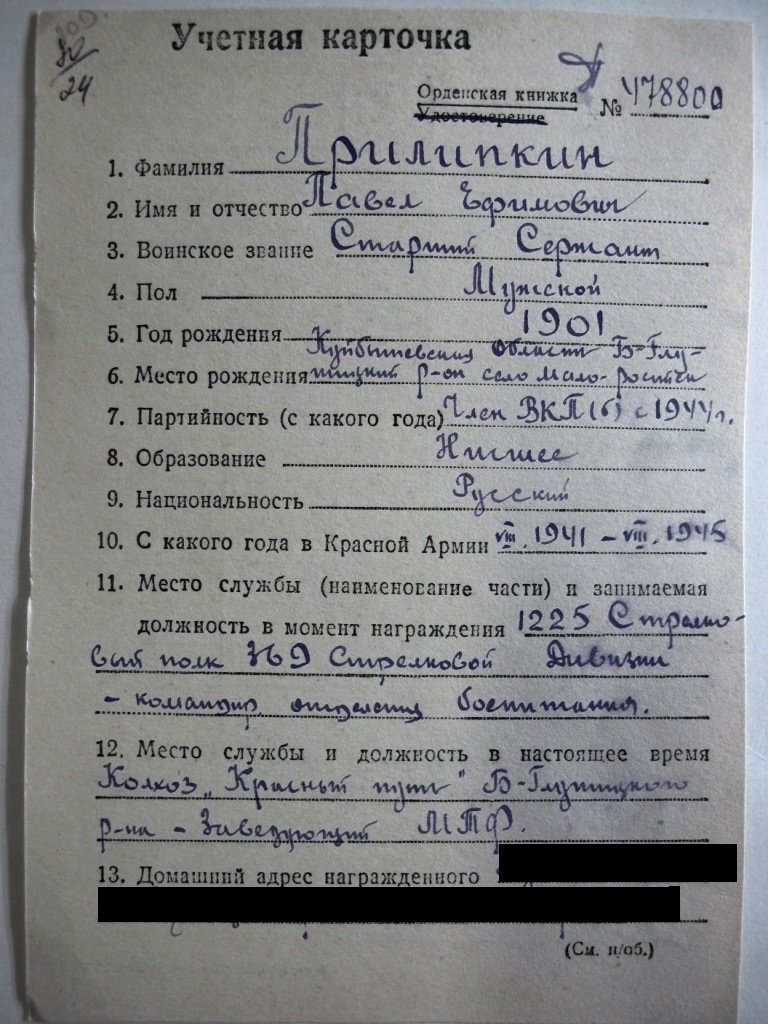 80
24
Учетная карточка
Орденская книжка
Удостоверение
№ 478800
1. Фамилия Прилипкин
2. Имя и отчество Павел Ефимович
3. Воинское звание Старший Сержант
4. Пол Мужской
5. Год рождения 1901
Куйбышевская область Б-Глу-
6. Место рождения шицкий р-он село Мало-
7. Партийность (с какого года) Член ВКП(б) с 1944 г.
8. Образование Низшее
9. Национальность Русский
10. С какого года в Красной Армии VIII. 1941 – VIII. 1945
11. Место службы (наименование части) и занимаемая
должность в момент награждения 1225 Стрелко-
вый полк 369 Стрелковой Дивизии
– командир отделения боепитания.
12. Место службы и должность в настоящее время
Колхоз „Красный путь" Б-Глушицкого
р-на – Заведующий МТФ.
13. Домашний адрес награжденного
(См. н/об.)